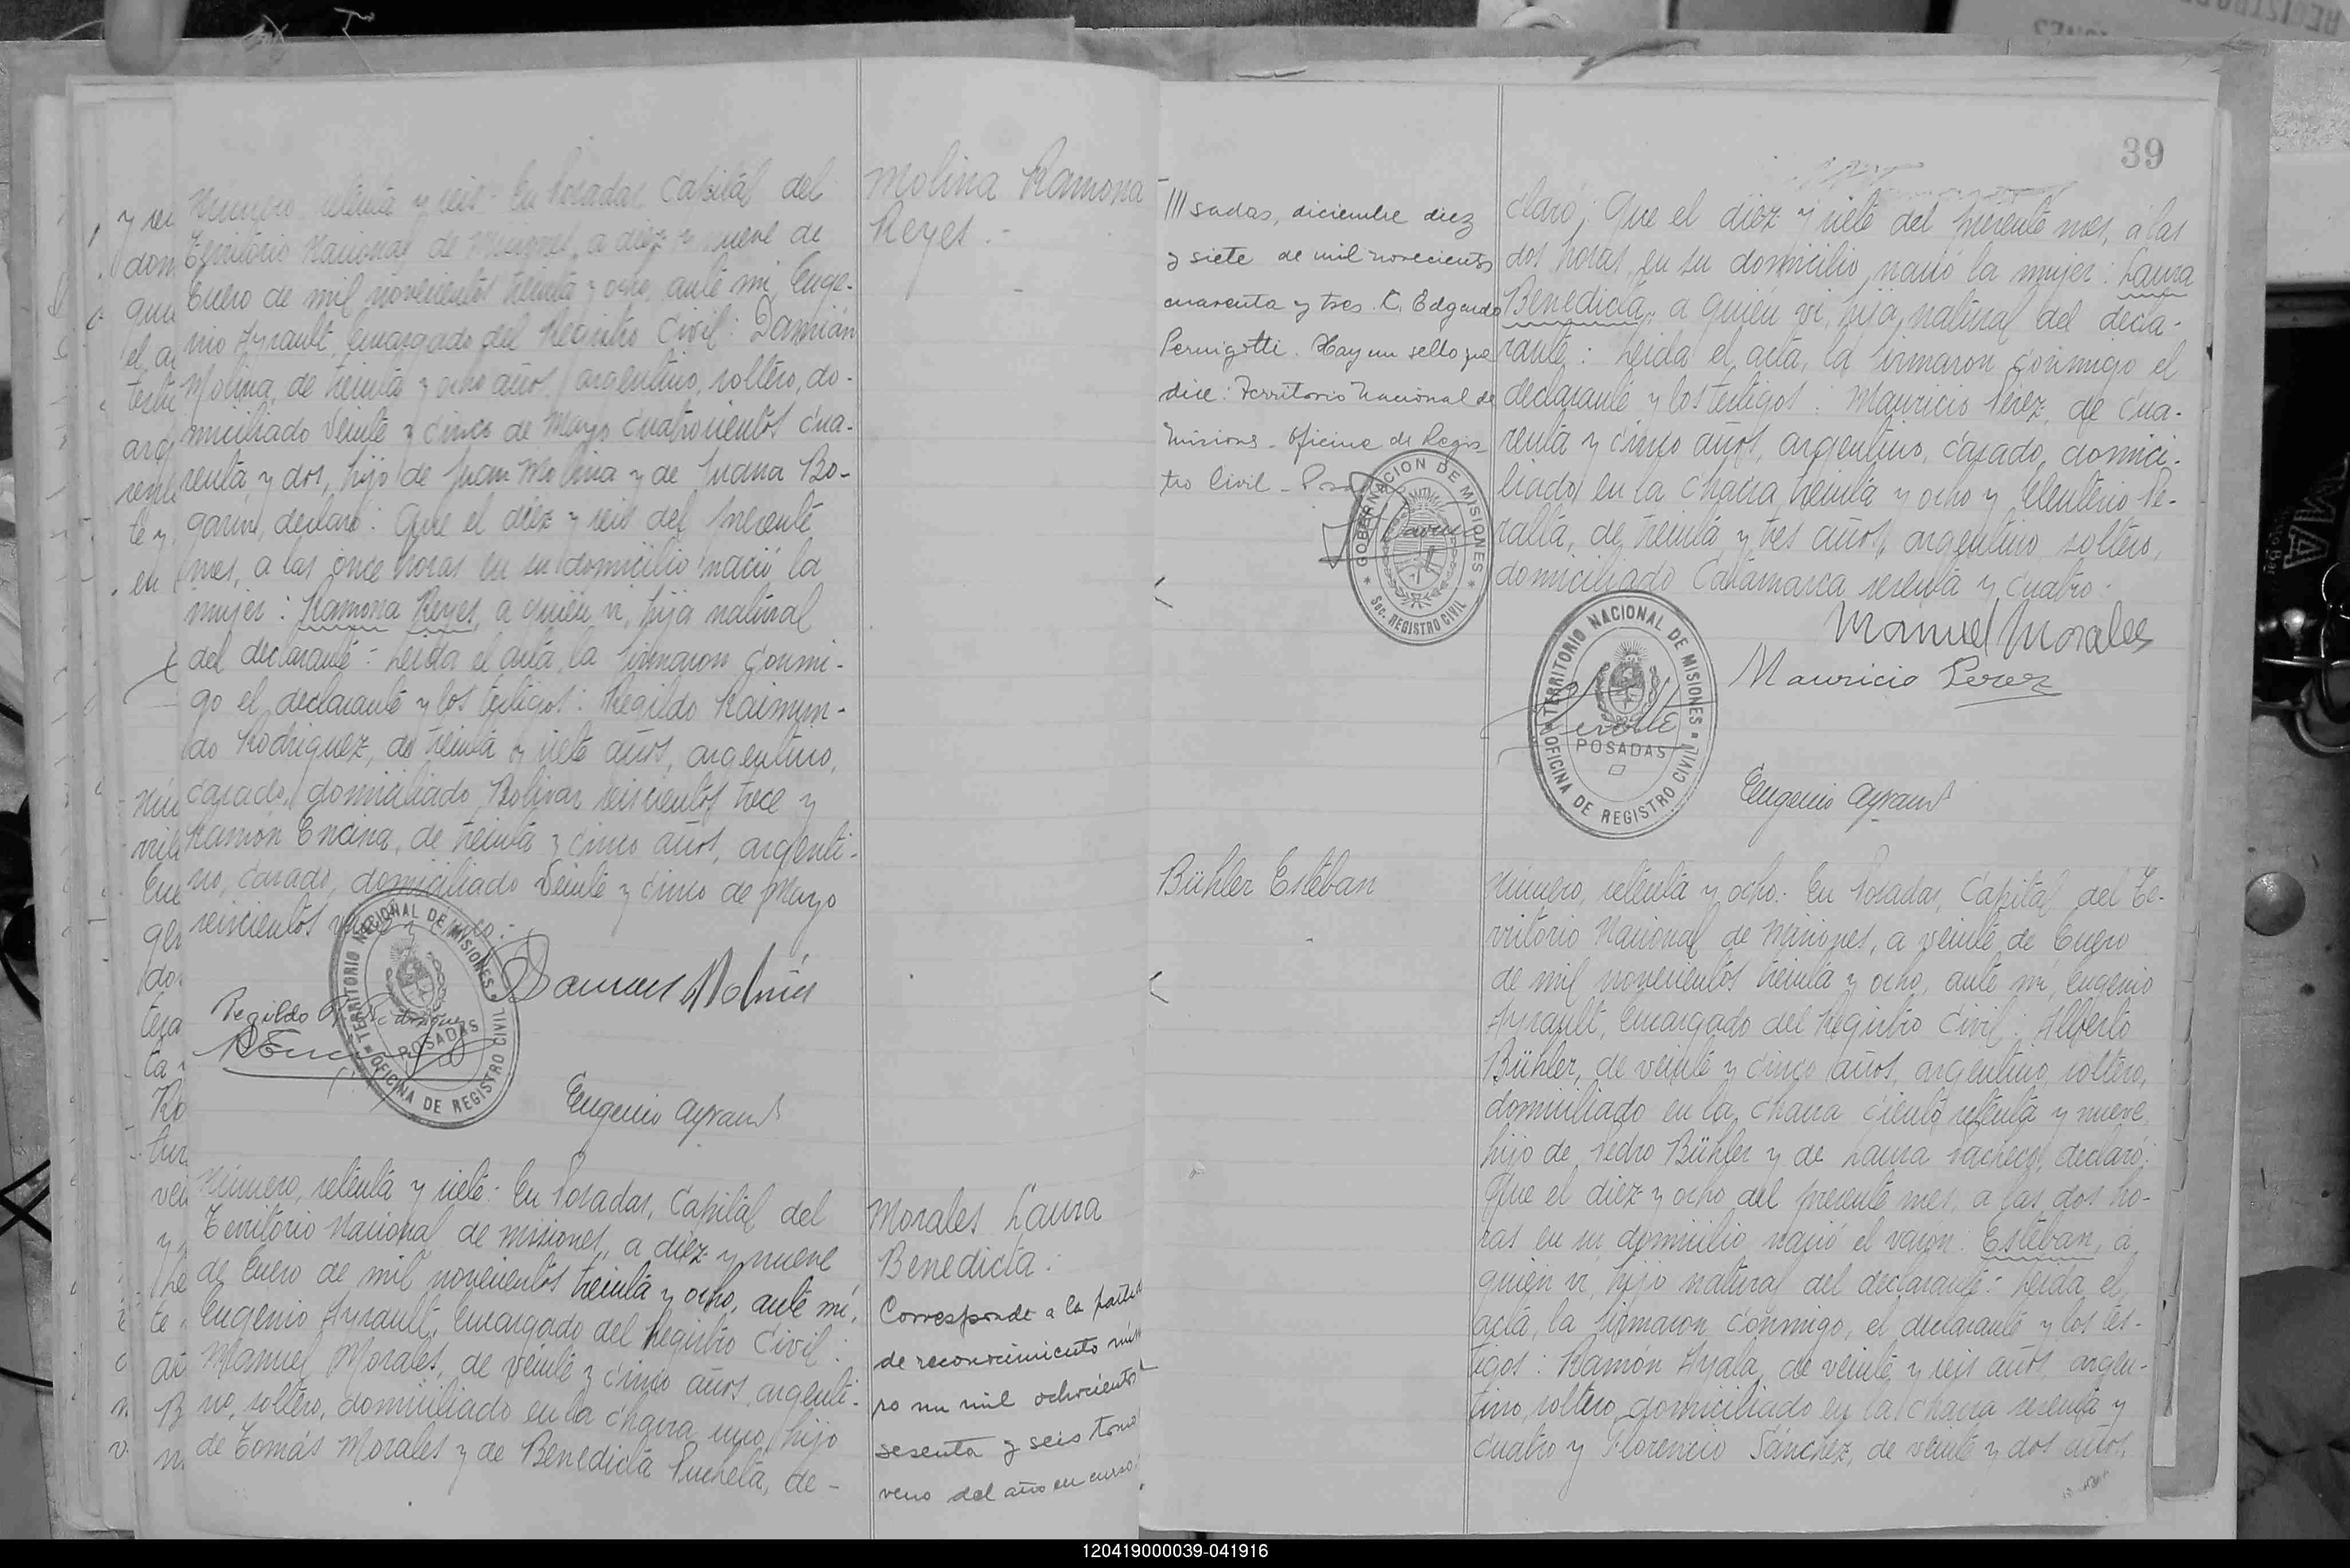 Molina Ramona
Reyes.-
Número setenta y seis - En Posadas Capital del
Territorio Nacional de Misiones, a diez y nueve de
Enero de mil novecientos treinta y ocho, ante mí, Euge-
nio Ayrault, Encargado del Registro Civil: Damián
Molina, de treinta y ocho años, argentino, soltero, do-
miciliado Veinte y cinco de Mayo cuatrocientos cua-
renta y dos, hijo de Juan Molina y de Juana Bo-
garin, declaró: Que el diez y seis del presente
mes, a las once horas en su domicilio nació la
mujer: Ramona Reyes, a quien vi, hija natural
del declarante: Leida el acta, la firmaron conmi-
go el declarante y los testigos: Regildo Raimun-
do Rodriguez, de treinta y siete años, argentino,
casado, domiciliado Bolivar seiscientos trece y
Ramón Encina, de treinta y cinco años, argenti-
no, casado, domiciliado Veinte y cinco de Mayo
seiscientos
TERRITORIO NACIONAL DE MISIONES
POSADAS
OFICINA DE REGISTRO CIVIL
Regildo R. Rodriguez
Eugenio Ayrault
Morales Laura
Benedicta:
Número, setenta y siete: En Posadas, Capital del
Territorio Nacional de Misiones, a diez y nueve
de Enero de mil novecientos treinta y ocho, ante mí,
Eugenio Ayrault, Encargado del Registro Civil:
Manuel Morales, de veinte y cinco años, argenti-
no, soltero, domiciliado en la chacra uno, hijo
de Tomás Morales y de Benedicta Pucheta, de-
Corresponde a la
de reconocimiento
ro mil ochocientos
sesenta y seis tomo
veno del año en curso.
39
sadas, diciembre diez
y siete de mil novecientos
cuarenta y tres. C. Edgardo
Pernigotti. Hay un sello que
dice: Territorio Nacional de
Misiones - Oficina de Regis
tro Civil -
GOBERNACION DE MISIONES
Sec. REGISTRO CIVIL
claró: Que el diez y siete del presente mes, a las
dos horas, en su domicilio, nació la mujer: Laura
Benedicta, a quien vi, hija natural del decla-
rante: Leida el acta, la firmaron conmigo el
declarante y los testigos: Mauricio Pérez, de cua-
renta y cinco años, argentino, casado, domici-
liado en la chacra treinta y ocho y Eleuterio Pe-
ralta, de treinta y tres años, argentino soltero,
domiciliado Catamarca sesenta y cuatro:
Manuel Morales
Mauricio Perez
TERRITORIO NACIONAL DE MISIONES
POSADAS
OFICINA DE REGISTRO CIVIL
Eugenio Ayrault
Bühler Estéban
Número, setenta y ocho: En Posadas, Capital del Te-
rritorio Nacional de Misiones, a veinte de Enero
de mil novecientos treinta y ocho, ante mí, Eugenio
Ayrault, Encargado del Registro Civil: Alberto
Bühler, de veinte y cinco años, argentino, soltero,
domiciliado en la chacra ciento setenta y nueve,
hijo de Pedro Bühler y de Laura Pacheco, declaró:
Que el diez y ocho del presente mes, a las dos ho-
ras en su domicilio nació el varón: Estéban, a
quien vi, hijo natural del declarante: Leida el
acta, la firmaron conmigo, el declarante y los tes-
tigos: Ramón Ayala, de veinte y seis años, argen-
tino, soltero, domiciliado en la chacra sesenta y
cuatro y Florencio Sánchez, de veinte y dos años,
120419000039-041916